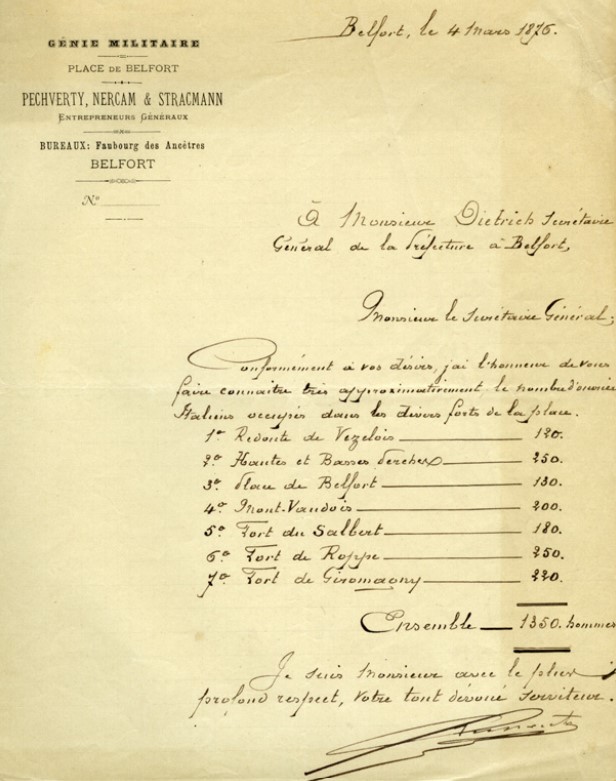 Belfort, le 4 Mars 1876.
GÉNIE MILITAIRE
PLACE DE BELFORT
PECHVERTY, NERCAM & STRACMANN
ENTREPRENEURS GÉNÉRAUX
BUREAUX: Faubourg des Ancêtres
BELFORT
No
À Monsieur Dietrich Secrétaire
Général de la Préfecture à Belfort,
Monsieur le Secrétaire Général;
Conformément à vos désirs, j'ai l'honneur de vous
faire connaître très approximativement le nombre d'ouvriers
Italiens occupés dans les divers forts de la place.
1o Redoute de Vezelois 120.
2o Hautes et Basses Perches 250.
3o Place de Belfort 130.
4o Mont-Vaudois 200.
5o Fort du Salbert 180.
6o Fort de Roppe 250.
7o Fort de Giromagny 220.
Ensemble 1350. hommes
Je suis Monsieur avec le plus
profond respect, votre tout dévoué serviteur.